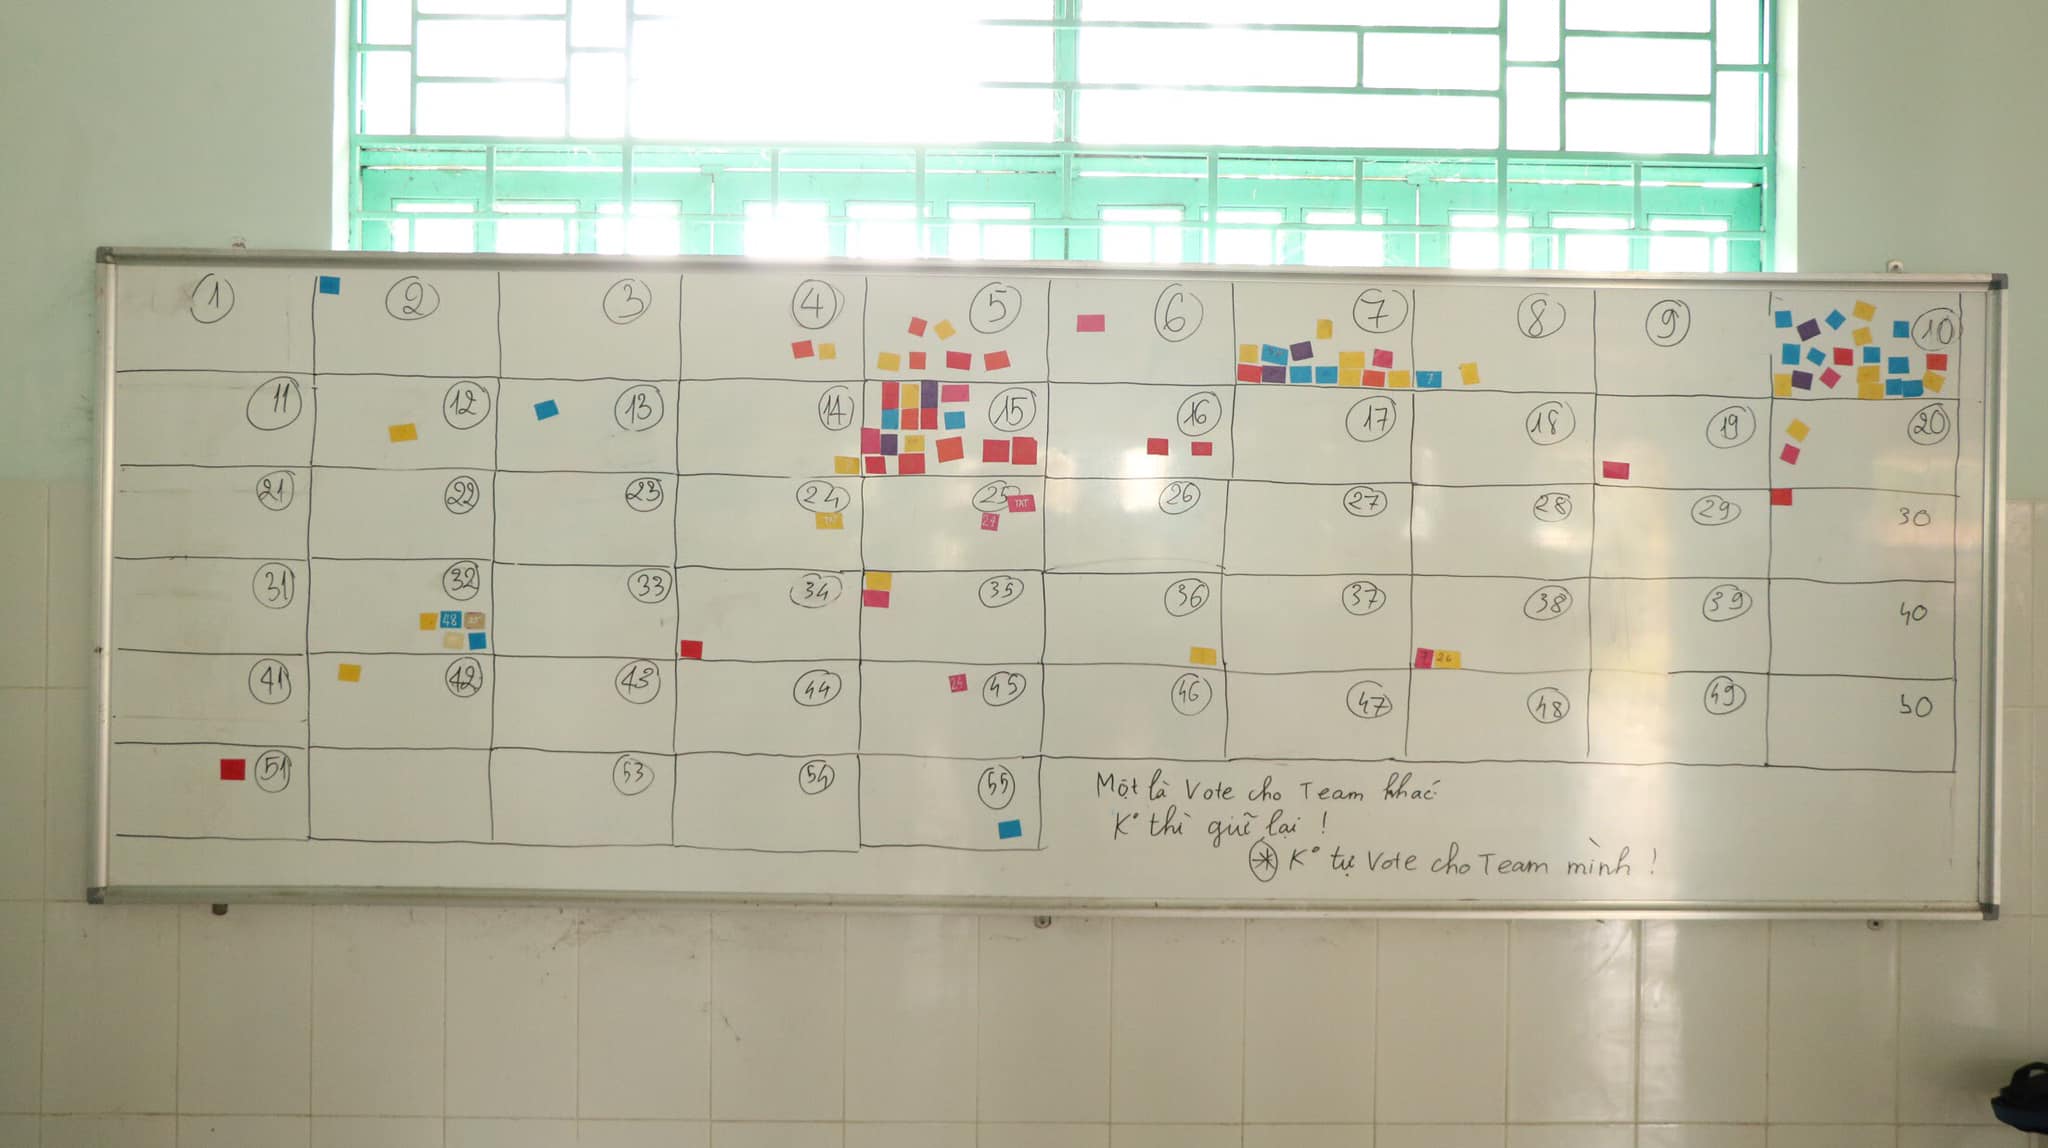 1 2 3 4 5 6 7 8 9 10
11 12 13 14 15 16 17 18 19 20
21 22 23 24 25 26 27 28 29 30
TAT TAT
27
31 32 33 34 35 36 37 38 39 40
48
7 26
41 42 43 44 45 46 47 48 49 50
24
51 53 54 55
Một là Vote cho Team khác
K° thì giữ lại !
* K° tự Vote cho Team mình !